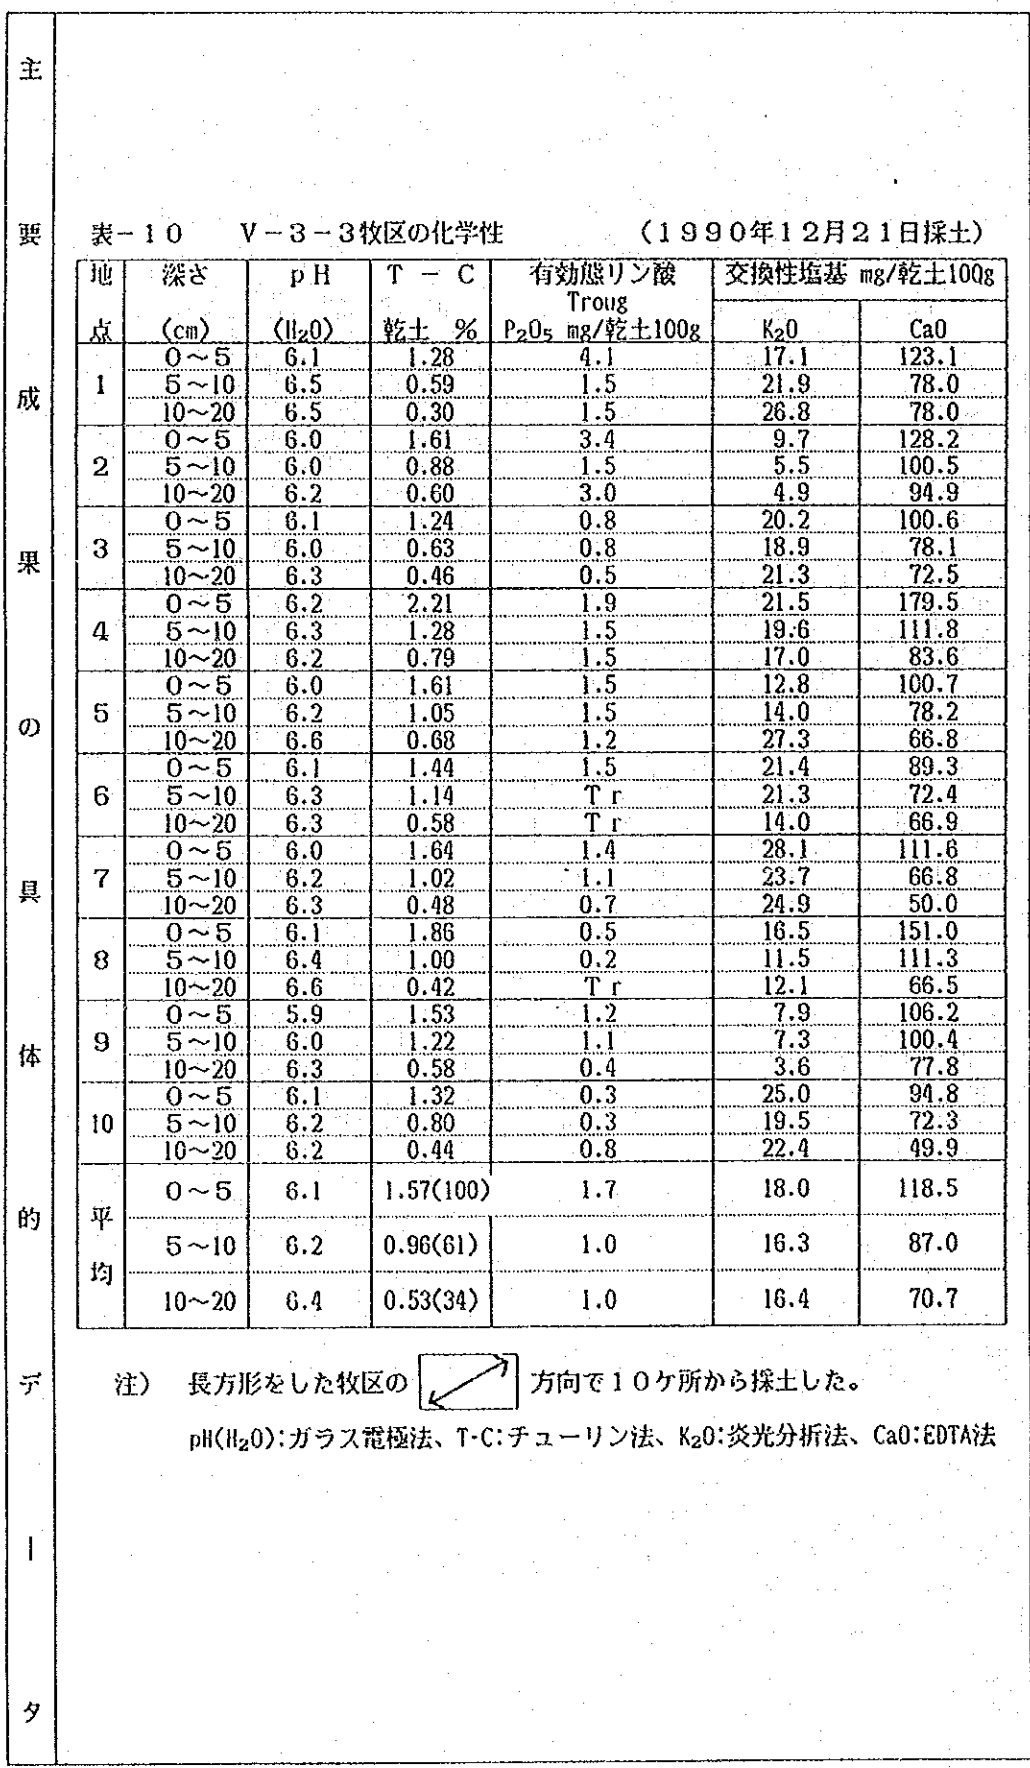 主要成果の具体的データ
表-10 V-3-3牧区の化学性 (1990年12月21日採土)
地点 深さ (cm) pH (H₂O) T - C 乾土 % 有効態リン酸 Troug P₂O₅ mg/乾土100g 交換性塩基 mg/乾土100g K₂O CaO
1 0~5 6.1 1.28 4.1 17.1 123.1
5~10 6.5 0.59 1.5 21.9 78.0
10~20 6.5 0.30 1.5 26.8 78.0
2 0~5 6.0 1.61 3.4 9.7 128.2
5~10 6.0 0.88 1.5 5.5 100.5
10~20 6.2 0.60 3.0 4.9 94.9
3 0~5 6.1 1.24 0.8 20.2 100.6
5~10 6.0 0.63 0.8 18.9 78.1
10~20 6.3 0.46 0.5 21.3 72.5
4 0~5 6.2 2.21 1.9 21.5 179.5
5~10 6.3 1.28 1.5 19.6 111.8
10~20 6.2 0.79 1.5 17.0 83.6
5 0~5 6.0 1.61 1.5 12.8 100.7
5~10 6.2 1.05 1.5 14.0 78.2
10~20 6.6 0.68 1.2 27.3 66.8
6 0~5 6.1 1.44 1.5 21.4 89.3
5~10 6.3 1.14 Tr 21.3 72.4
10~20 6.3 0.58 Tr 14.0 66.9
7 0~5 6.0 1.64 1.4 28.1 111.6
5~10 6.2 1.02 1.1 23.7 66.8
10~20 6.3 0.48 0.7 24.9 50.0
8 0~5 6.1 1.86 0.5 16.5 151.0
5~10 6.4 1.00 0.2 11.5 111.3
10~20 6.6 0.42 Tr 12.1 66.5
9 0~5 5.9 1.53 1.2 7.9 106.2
5~10 6.0 1.22 1.1 7.3 100.4
10~20 6.3 0.58 0.4 3.6 77.8
10 0~5 6.1 1.32 0.3 25.0 94.8
5~10 6.2 0.80 0.3 19.5 72.3
10~20 6.2 0.44 0.8 22.4 49.9
平均 0~5 6.1 1.57(100) 1.7 18.0 118.5
5~10 6.2 0.96(61) 1.0 16.3 87.0
10~20 6.4 0.53(34) 1.0 16.4 70.7
注) 長方形をした牧区の 方向で10ケ所から採土した。
pH(H₂O):ガラス電極法、T-C:チューリン法、K₂O:炎光分析法、CaO:EDTA法